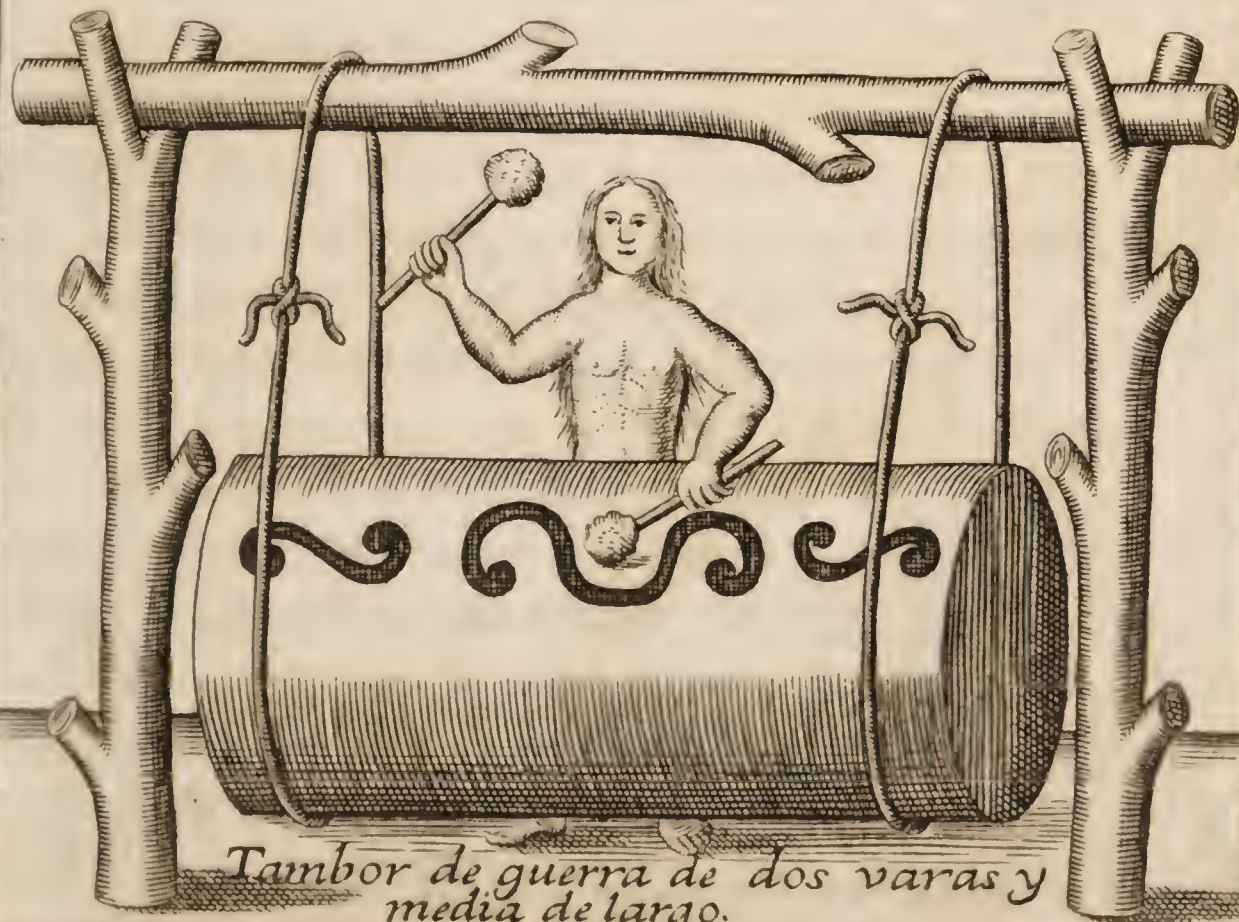 Tambor de guerra de dos varas y
media de largo.